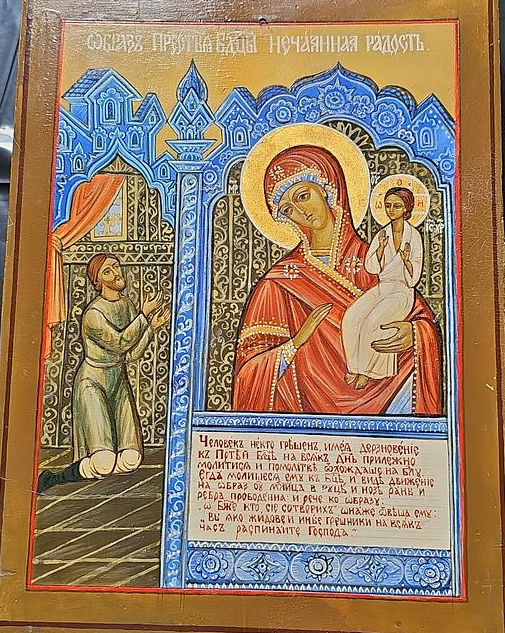 ѠБРАЗЪ ПРЕСТЫѦ БДЦЫ НЕЧАѦННАѦ РАДОСТЬ.
МР
ІС ХР
Человекъ некто грѣшенъ, имеѧ дерзновеніе
къ Пртѣй Бцѣ на всѧкъ днь прилежно
молитисѧ и помолитвѣ ѿхождаше на
Егда молившесѧ ему къ Бцѣ, и видѣ движеніе
на ѡбраз ѹ мл҃нца в руцѣ и нозѣ раны и
ребра прободенна: и рече ко ѡбразу:
„ѡ Бже кто, сіе сотворихъ" ѡнаже ѿвѣща ему:
„вы ѧко жидове и иныѣ грешники на всѧкъ
часъ распинаите Господа."